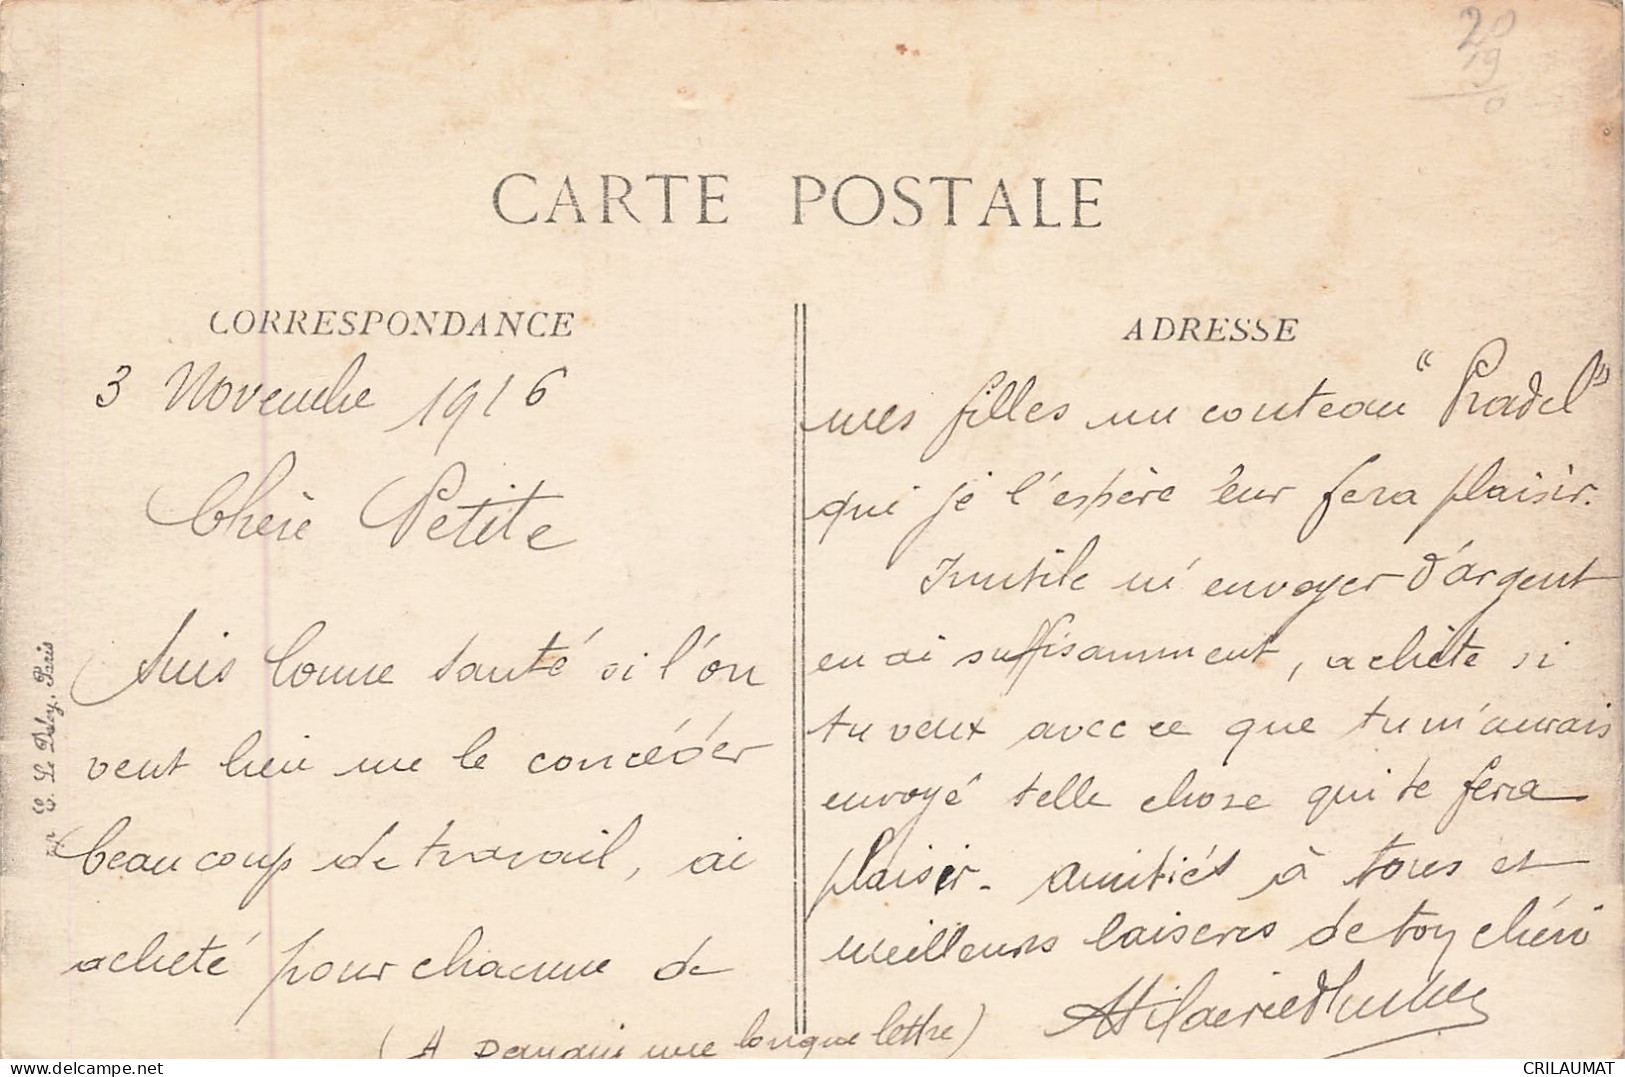 20
19
0
CARTE POSTALE
CORRESPONDANCE
3 Novembre 1916
Chère Petite
Suis bonne santé si l'on
veut bien me le concéder
beaucoup de travail, ai
acheté pour chacune de
(A demain une longue lettre)
ADRESSE
mes filles un couteau "Pradel"
qui je l'espère leur fera plaisir.
Inutile m'envoyer d'argent
en ai suffisamment, achète si
tu veux avec ce que tu m'aurais
envoyé telle chose qui te fera
plaisir. Amitiés à tous et
meilleurs baisers de toy chéri
E. Le Deley, Paris
CRILAUMAT